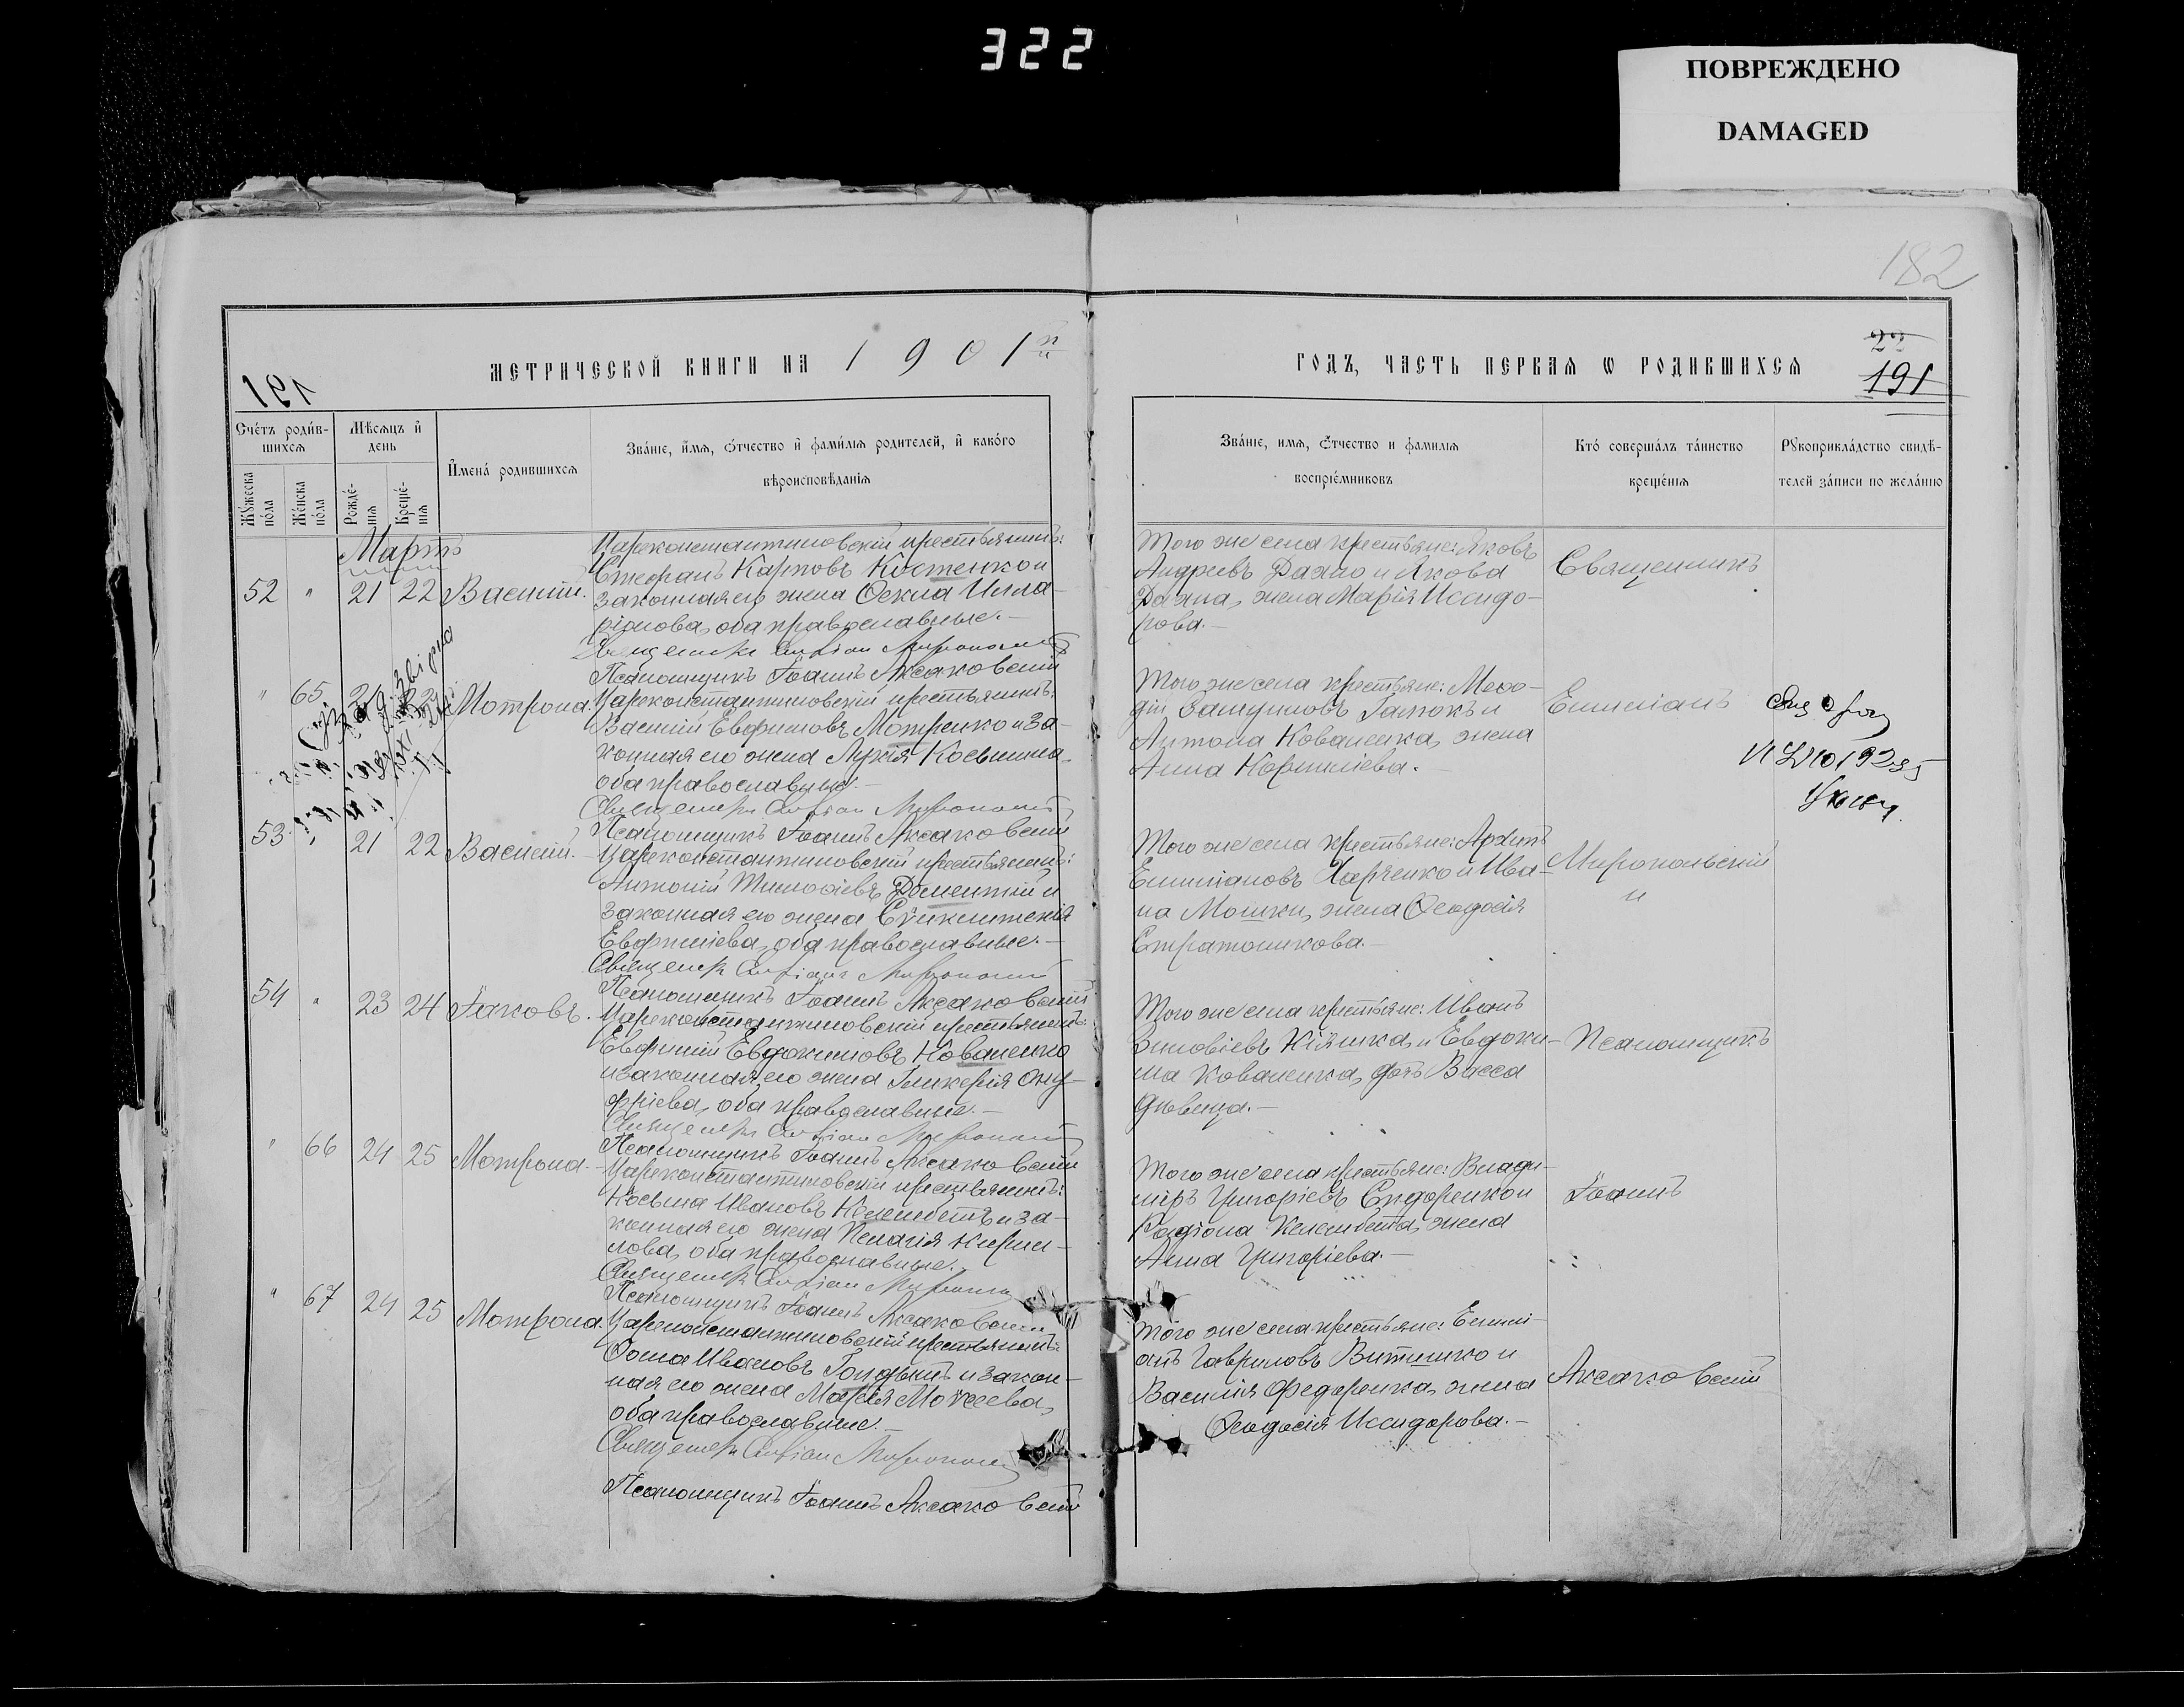 322
ПОВРЕЖДЕНО
DAMAGED
182
МЕТРИЧЕСКОЙ КНИГИ НА 1901й
ГОДЪ, ЧАСТЬ ПЕРВАЯ Ѡ РОДИВШИХСЯ
191
191
Сче́тъ роди́в-
шихся
Мѣсяцъ и҆
день
Мꙋжеска
по́ла
Же́нска
по́ла
Рожде́-
нїя
Креще́-
нїя
И҆мена́ родившихся
Зва́нїе, и҆́мя, ѻ҆́тчество и҆ фами́лїя родителей, и҆ како́го
вѣроисповѣ́данїя
Зва́нїе, имя, ѻ҆́тчество и фамилїя
воспрїе́мниковъ
Кто́ соверша́лъ та́инство
креще́нїя
Рꙋкоприкла́дство свидѣ́-
телей за́писи по жела́нїю
Мартъ
52 " 21 22 Василій.
Цареконстантиновскій крестьянинъ:
Стефанъ Карповъ Костенко и
законная его жена Ѳекла Илла-
ріонова, оба православные.-
Того же села крестьяне: Яковъ
Андреевъ Дахно и Якова
Дахна, жена Марія Исидо-
рова.-
Священникъ
Псаломщикъ Іоаннъ Аксаковскій
" 65 21 22 Мотрона.
Цареконстантиновскій крестьянинъ:
Василій Евфимовъ Мотренко и за-
конная его жена Лукія Косьмина,
оба православные.-
Того же села крестьяне: Меѳо-
дій
Антона Коваленка, жена
Анна Корниліева.-
Емиліанъ
Псаломщикъ Іоаннъ Аксаковскій
53 " 21 22 Василій.
Цареконстантиновскій крестьянинъ:
Антоній Тимоѳіевъ Дементій и
законная его жена Сѵнклитикія
Евфиміева, оба православные.-
Того же села крестьяне: Архипъ
Емиліановъ Харченко и Ива-
на Мошки, жена Ѳеодосія
Стратоникова.-
Миропольскій
и
Псаломщикъ Іоаннъ Аксаковскій
54 " 23 24 Іаковъ.
Цареконстантиновскій крестьянинъ:
Евфимій Евдокимовъ Коваленко
и законная его жена Гликерія Ону-
фріева, оба православные.-
Того же села крестьяне: Иванъ
Зиновіевъ Кіяшка, и Евдоки-
ма Коваленка, дочь Васса
дѣвица.-
Псаломщикъ
Псаломщикъ Іоаннъ Аксаковскій
" 66 24 25 Мотрона.
Цареконстантиновскій крестьянинъ:
Косьма Ивановъ Келембетъ и за-
конная его жена Пелагія Кирил-
лова, оба православные.-
Того же села крестьяне: Влади-
міръ Григоріевъ Сидоренко и
Родіона Келембета, жена
Анна Григоріева.-
Іоаннъ
Псаломщикъ Іоаннъ Аксаковскій
" 67 24 25 Мотрона.
Цареконстантиновскій крестьянинъ:
Ѳома Ивановъ Гондылъ и закон-
ная его жена Марія Моѵсеева,
оба православные.-
Того же села крестьяне: Емилі-
анъ Гавриловъ Витишко и
Василія Федоренка, жена
Ѳеодосія Исидорова.-
Аксаковскій
Псаломщикъ Іоаннъ Аксаковскій